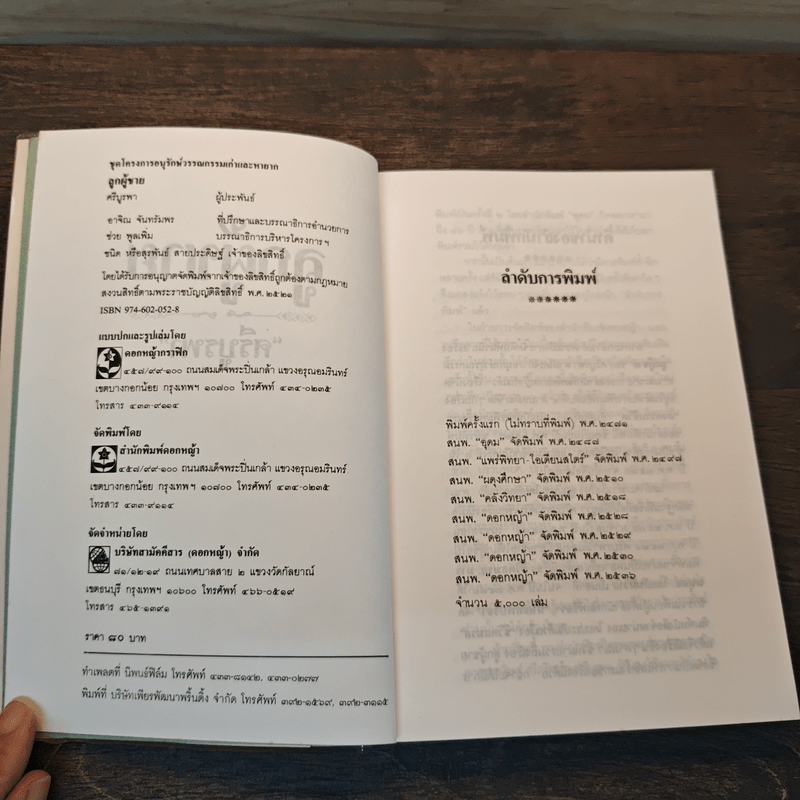 ชุดโครงการอนุรักษ์วรรณกรรมเก่าและหายาก
ลูกผู้ชาย
ศรีบูรพา ผู้ประพันธ์
อาจิณ จันทรัมพร ที่ปรึกษาและบรรณาธิการอำนวยการ
ช่วย พูลเพิ่ม บรรณาธิการบริหารโครงการฯ
ชนิด หรือสุรพันธ์ สายประดิษฐ์ เจ้าของลิขสิทธิ์
โดยได้รับการอนุญาตจัดพิมพ์จากเจ้าของลิขสิทธิ์ถูกต้องตามกฎหมาย
สงวนสิทธิ์ตามพระราชบัญญัติลิขสิทธิ์ พ.ศ.๒๕๒๑
ISBN 974-602-052-8
แบบปกและรูปเล่มโดย
ดอกหญ้ากราฟิก
๔๕๗/๙๙-๑๐๐ ถนนสมเด็จพระปิ่นเกล้า แขวงอรุณอมรินทร์
เขตบางกอกน้อย กรุงเทพฯ ๑๐๗๐๐ โทรศัพท์ ๔๓๔-๐๒๓๕
โทรสาร ๔๓๓-๙๑๑๔
จัดพิมพ์โดย
สำนักพิมพ์ดอกหญ้า
๔๕๗/๙๙-๑๐๐ ถนนสมเด็จพระปิ่นเกล้า แขวงอรุณอมรินทร์
เขตบางกอกน้อย กรุงเทพฯ ๑๐๗๐๐ โทรศัพท์ ๔๓๔-๐๒๓๕
โทรสาร ๔๓๓-๙๑๑๔
จัดจำหน่ายโดย
บริษัทสามัคคีสาร (ดอกหญ้า) จำกัด
๘๑/๑๒-๑๙ ถนนเทศบาลสาย ๒ แขวงวัดกัลยาณ์
เขตธนบุรี กรุงเทพฯ ๑๐๖๐๐ โทรศัพท์ ๔๖๖-๐๕๑๙
โทรสาร ๔๖๕-๑๓๙๑
ราคา ๘๐ บาท
ทำเพลตที่ นิพนธ์ฟิล์ม โทรศัพท์ ๔๓๓-๘๑๔๒, ๔๓๓-๐๒๗๗
พิมพ์ที่ บริษัทเพียรพัฒนาพริ้นติ้ง จำกัด โทรศัพท์ ๓๙๒-๑๕๖๙, ๓๙๒-๓๑๑๕
ลำดับการพิมพ์
******
พิมพ์ครั้งแรก (ไม่ทราบที่พิมพ์) พ.ศ.๒๔๗๑
สนพ. “อุดม” จัดพิมพ์ พ.ศ.๒๔๘๗
สนพ. “แพร่พิทยา-โอเดียนสโตร์” จัดพิมพ์ พ.ศ.๒๔๙๗
สนพ. “ผดุงศึกษา” จัดพิมพ์ พ.ศ.๒๕๑๐
สนพ. “คลังวิทยา” จัดพิมพ์ พ.ศ.๒๕๑๘
สนพ. “ดอกหญ้า” จัดพิมพ์ พ.ศ.๒๕๒๘
สนพ. “ดอกหญ้า” จัดพิมพ์ พ.ศ.๒๕๒๙
สนพ. “ดอกหญ้า” จัดพิมพ์ พ.ศ.๒๕๓๐
สนพ. “ดอกหญ้า” จัดพิมพ์ พ.ศ.๒๕๓๖
จำนวน ๕,๐๐๐ เล่ม